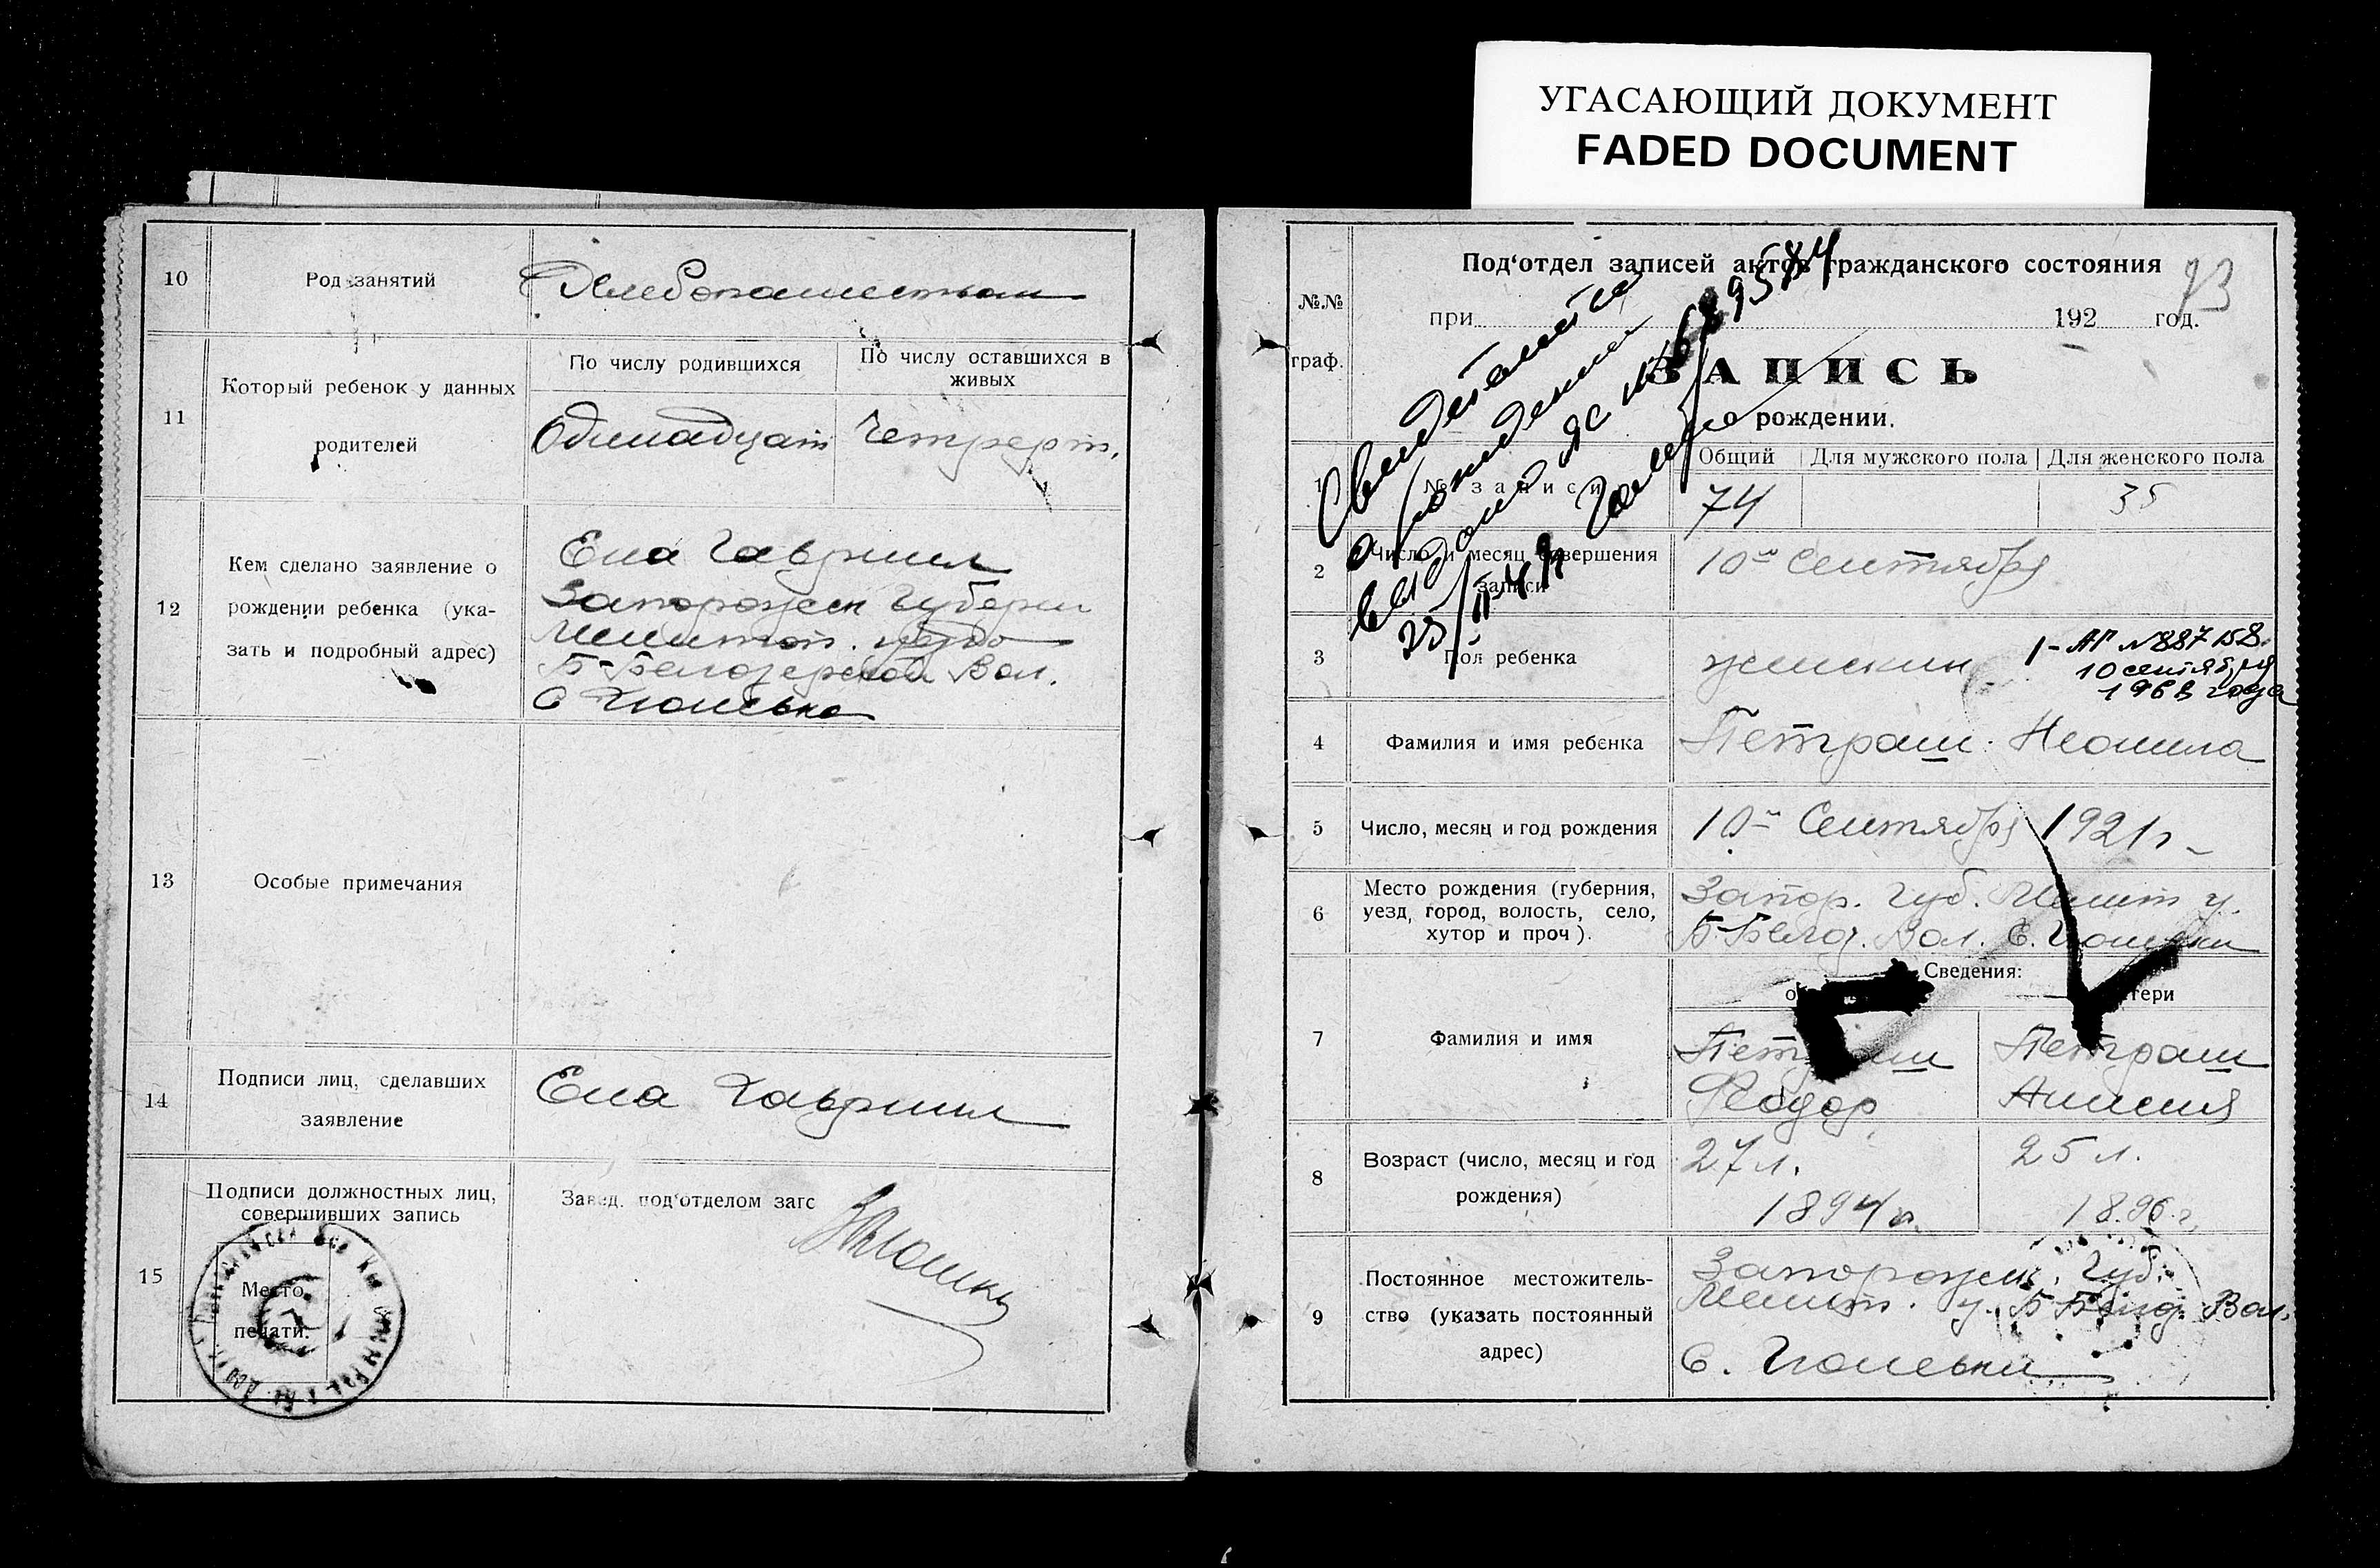 УГАСАЮЩИЙ ДОКУМЕНТ
FADED DOCUMENT
10 Род занятий Хлебопашеством
11 Который ребенок у данных родителей
По числу родившихся
По числу оставшихся в живых
Одинадцат Четверт.
12 Кем сделано заявление о
рождении ребенка (ука-
зать и подробный адрес)
Ена Гавриил
Запорожск Губерни
Мелитоп.
Б-Белозерской Вол.
С Гюневка
13 Особые примечания
14 Подписи лиц, сделавших
заявление
Ена Гавриил
15 Подписи должностных лиц,
совершивших запись
Завед. под'отделом загс
Место
печати.
73
№№
граф.
Под'отдел записей актов гражданского состояния
при 192 год.
ЗАПИСЬ
о рождении.
Свидетельство
о рождении
выдано
1 № записи
Общий Для мужского пола Для женского пола
74 35
2 Число и месяц совершения
записи
10го Сентября
3 Пол ребенка женский
I-АП №887158.
10 сентября
1968 года
4 Фамилия и имя ребенка Петраш Неонила
5 Число, месяц и год рождения 10го Сентября 1921г
6 Место рождения (губерния,
уезд, город, волость, село,
хутор и проч).
Запор. Губ. Мелит у.
Б-Белоз. Вол. С. Гюневки
Сведения:
7 Фамилия и имя
Петраш
Феодор
Петраш
Анисия
8 Возраст (число, месяц и год
рождения)
27 л. 25 л.
1894 г. 1896 г.
9 Постоянное местожитель-
ство (указать постоянный
адрес)
Запорожск. Губ.
Мелит. у. Б Белоз. Вол.
С. Гюневки